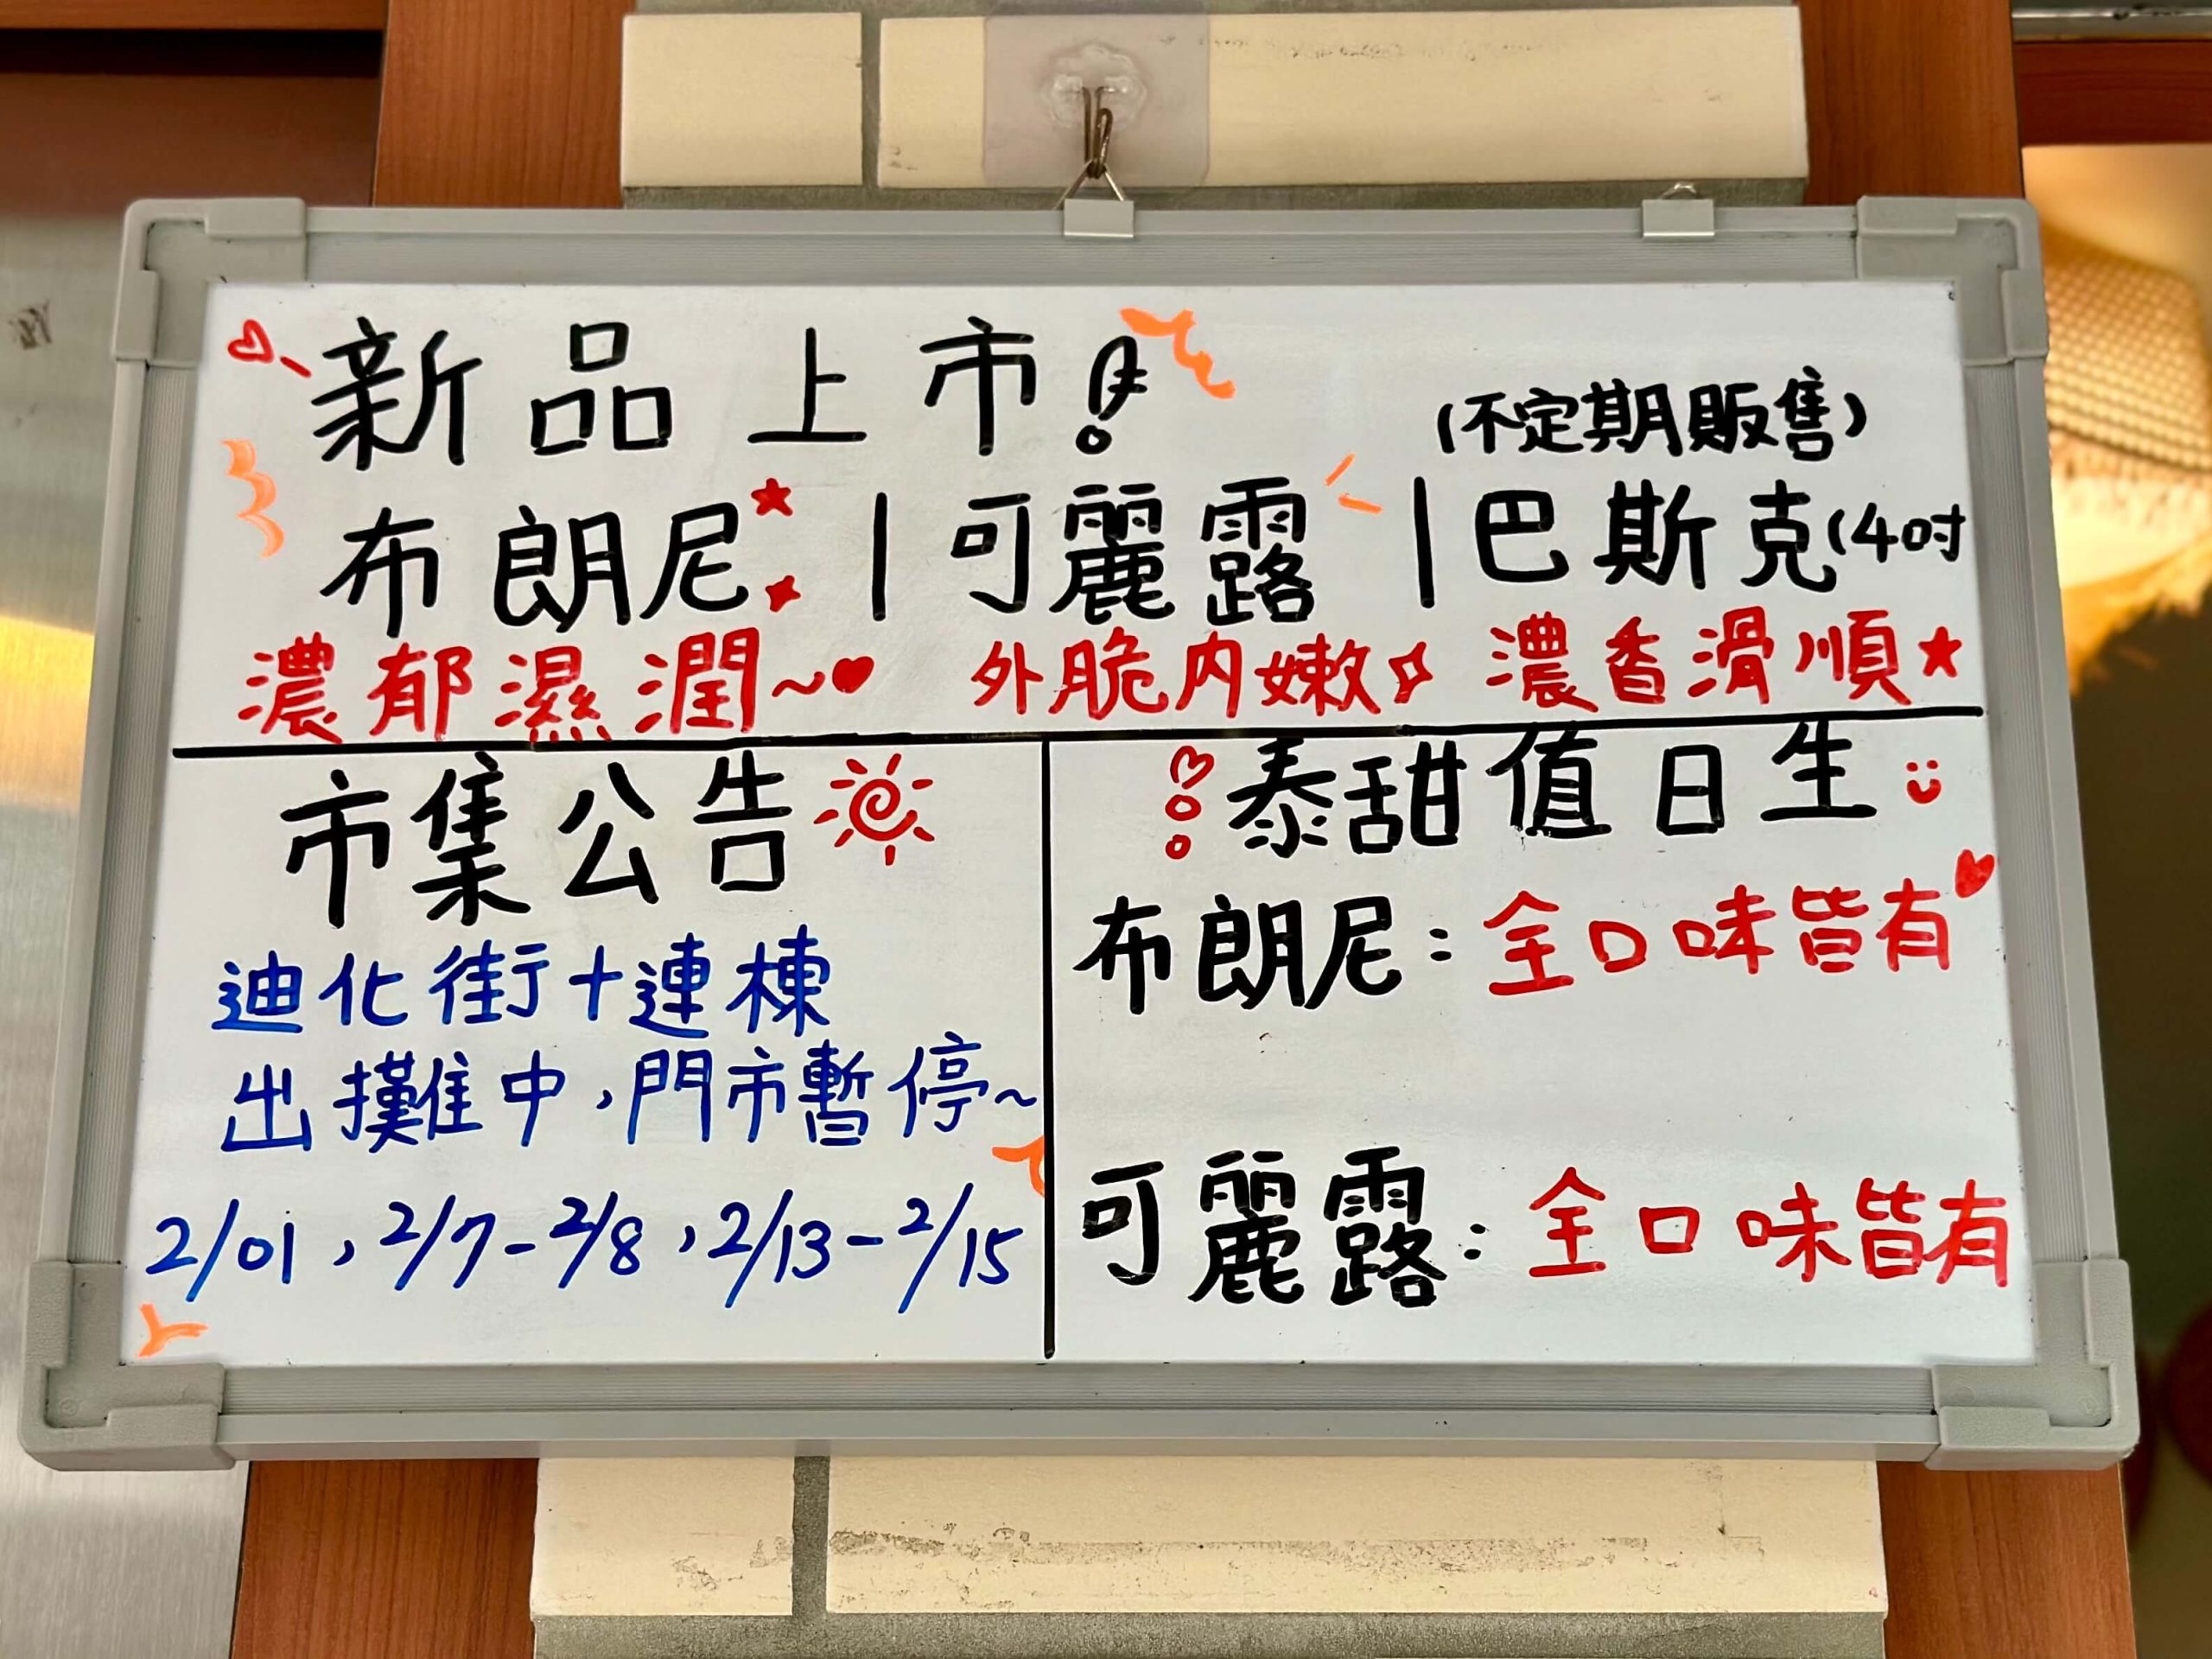 新品上市!
(不定期販售)
布朗尼 | 可麗露 | 巴斯克(4吋
濃郁濕潤~ 外脆內嫩 濃香滑順
市集公告
迪化街十連棟
出攤中,門市暫停~
2/01,2/7-2/8,2/13-2/15
泰甜值日生
布朗尼:全口味皆有
可麗露:全口味皆有